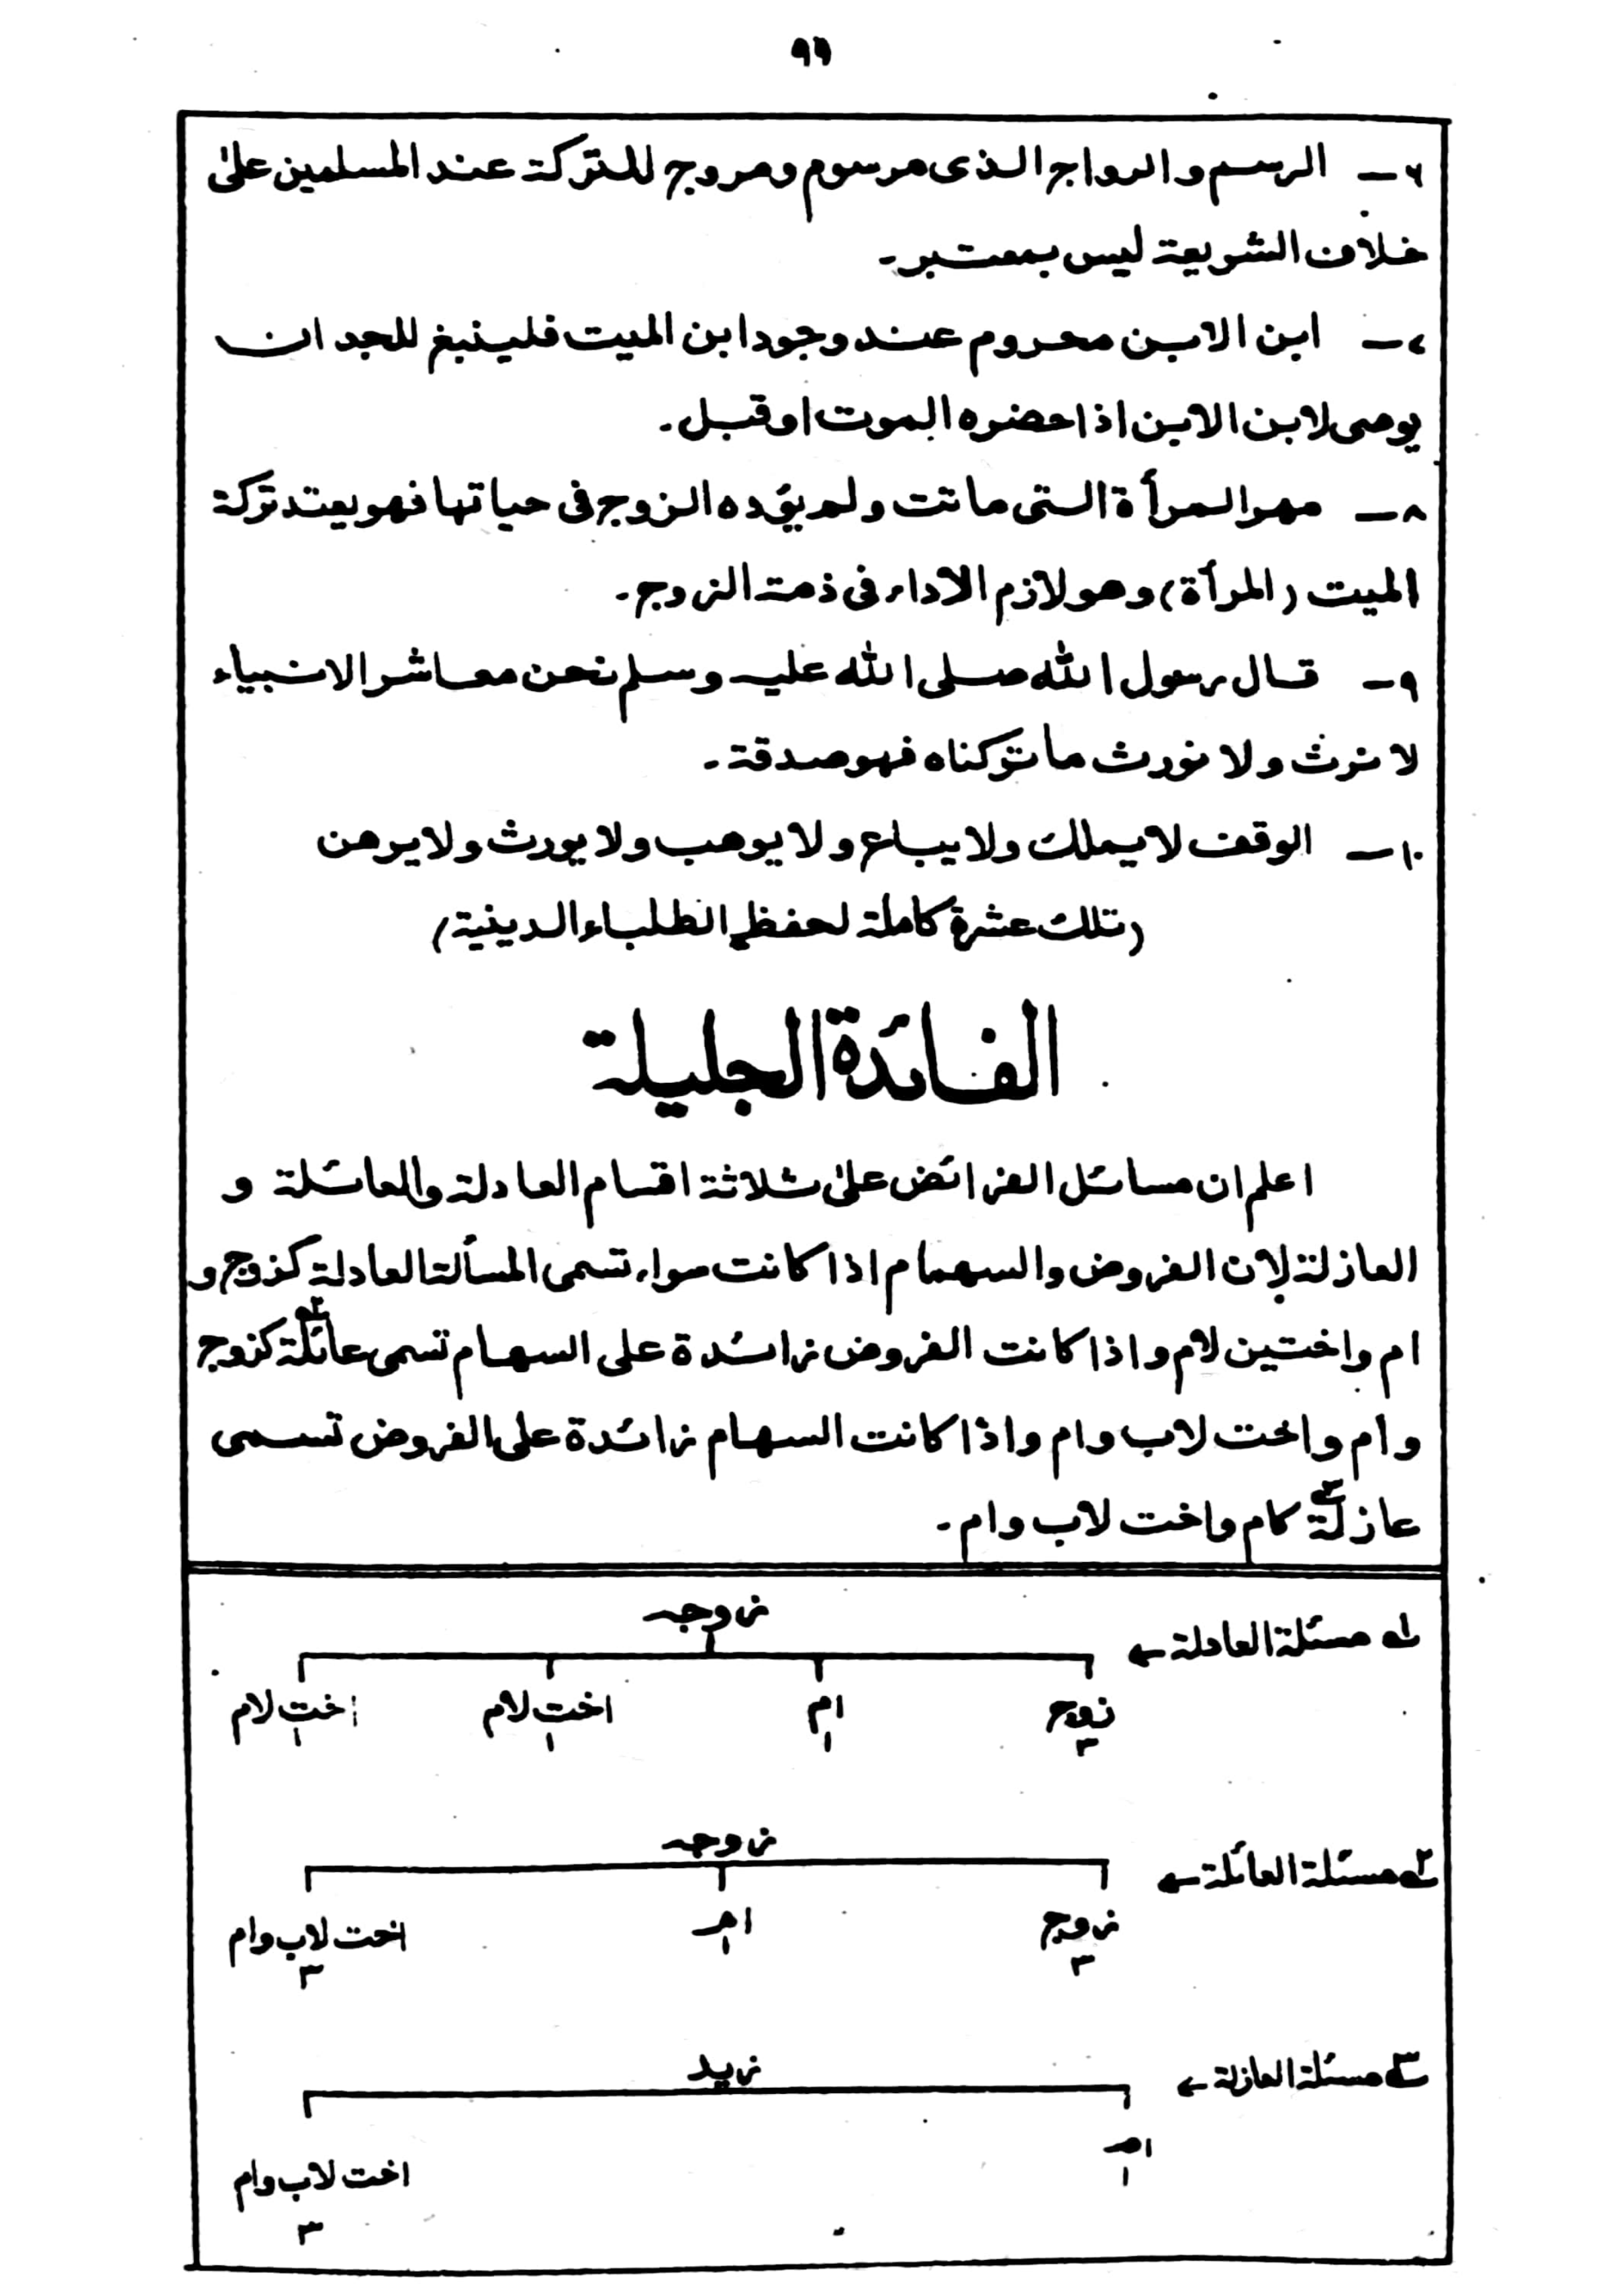 ٩٦
٦ــ الرسم والرواج الذى مرسوم ومروج للتركة عند المسلمين علىٰ
خلاف الشريعة ليس بمعتبر۔
٧ــ ابن الابن محروم عند وجود ابن الميت فلينبغ للجد ان
يوصى لابن الابن اذا حضره الموت او قبل۔
٨ــ مهر المرأة التى ماتت ولم يؤده الزوج فى حياتها فهو يعتد تركة
الميت (المرأة) وهو لازم الاداء فى ذمة الزوج۔
٩ــ قال رسول الله صلى الله عليه وسلم نحن معاشر الانبياء
لا نرث ولا نورث ما تركناه فهو صدقة۔
١٠ــ الوقف لا يملك ولا يباع ولا يوهب ولا يورث ولا يرهن
(تلك عشرة كاملة لحفظ الطلباء الدينية)
الفائدة الجليلة
اعلم ان مسائل الفرائض علىٰ ثلاثة اقسام العادلة والعائلة و
العازلة لان الفروض والسهام اذا كانت سواء تسمى المسألة العادلة كزوج و
ام واختين لام واذا كانت الفروض زائدة على السهام تسمى عائلة٢ كزوج
وام واخت لاب وام واذا كانت السهام زائدة على الفروض تسمى
عازلة٣ كام واخت لاب وام۔
١ مسئلة العادلة ←
زوجه
زوج ام اخت لام اخت لام
٣ ١ ١ ١
٢ مسئلة العائلة ←
زوجه
زوج ام اخت لاب وام
٣ ١ ٣
٣ مسئلة العازلة ←
زيد
ام اخت لاب وام
١ ٣